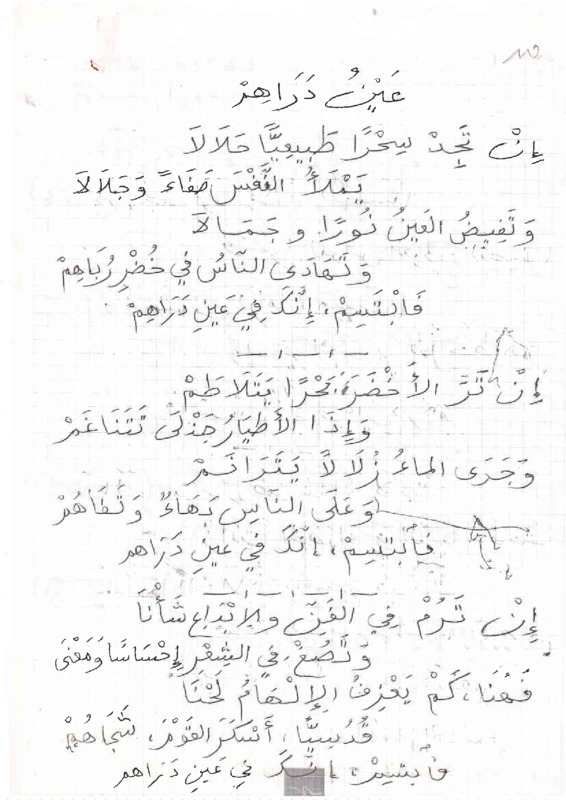 عَيْنُ دَرَاهِمْ
إِنْ تَجِدْ سِحْرًا طَبِيعِيًّا حَلَالَا
يَمْلَأُ النَّفْسَ صَفَاءً وَجَلَالَا
وَتَفِيضُ العَينُ نُورًا وجَمَالَا
وَتَهَادَى النَّاسُ فِي خُضْرِ رُبَاهِمْ
فَابْتَسِمْ، إِنَّكَ فِي عَينِ دَرَاهِمْ
إِنْ تَرَ الأَخْضَرَ بَحْرًا يَتَلَاطَمْ
وَإِذَا الأَطْيَارُ جَذْلَى تَتَنَاغَمْ
وَجَرَى المَاءُ زُلَالًا يَتَرَانَمْ
وَعَلَى النَّاسِ بَهَاءٌ وَتَفَاهُمْ
فَابتَسِمْ، انَّكَ فِي عَينِ دَرَاهم
إِنْ تَرُمْ فِي الفَنِّ والابْدَاعِ شَأْنَا
وَتَصُغْ فِي الشِّعْرِ إِحْسَاسًا وَمَعْنَى
فَهُنَا، كَمْ يَعْزِفُ الإِلْهَامُ لَحْنَا
قُدُسِيًّا، أَسْكَرَ القَوْمَ، شَجَاهُمْ
فابتسِمْ، انَّكَ فِي عَينِ دَرَاهم